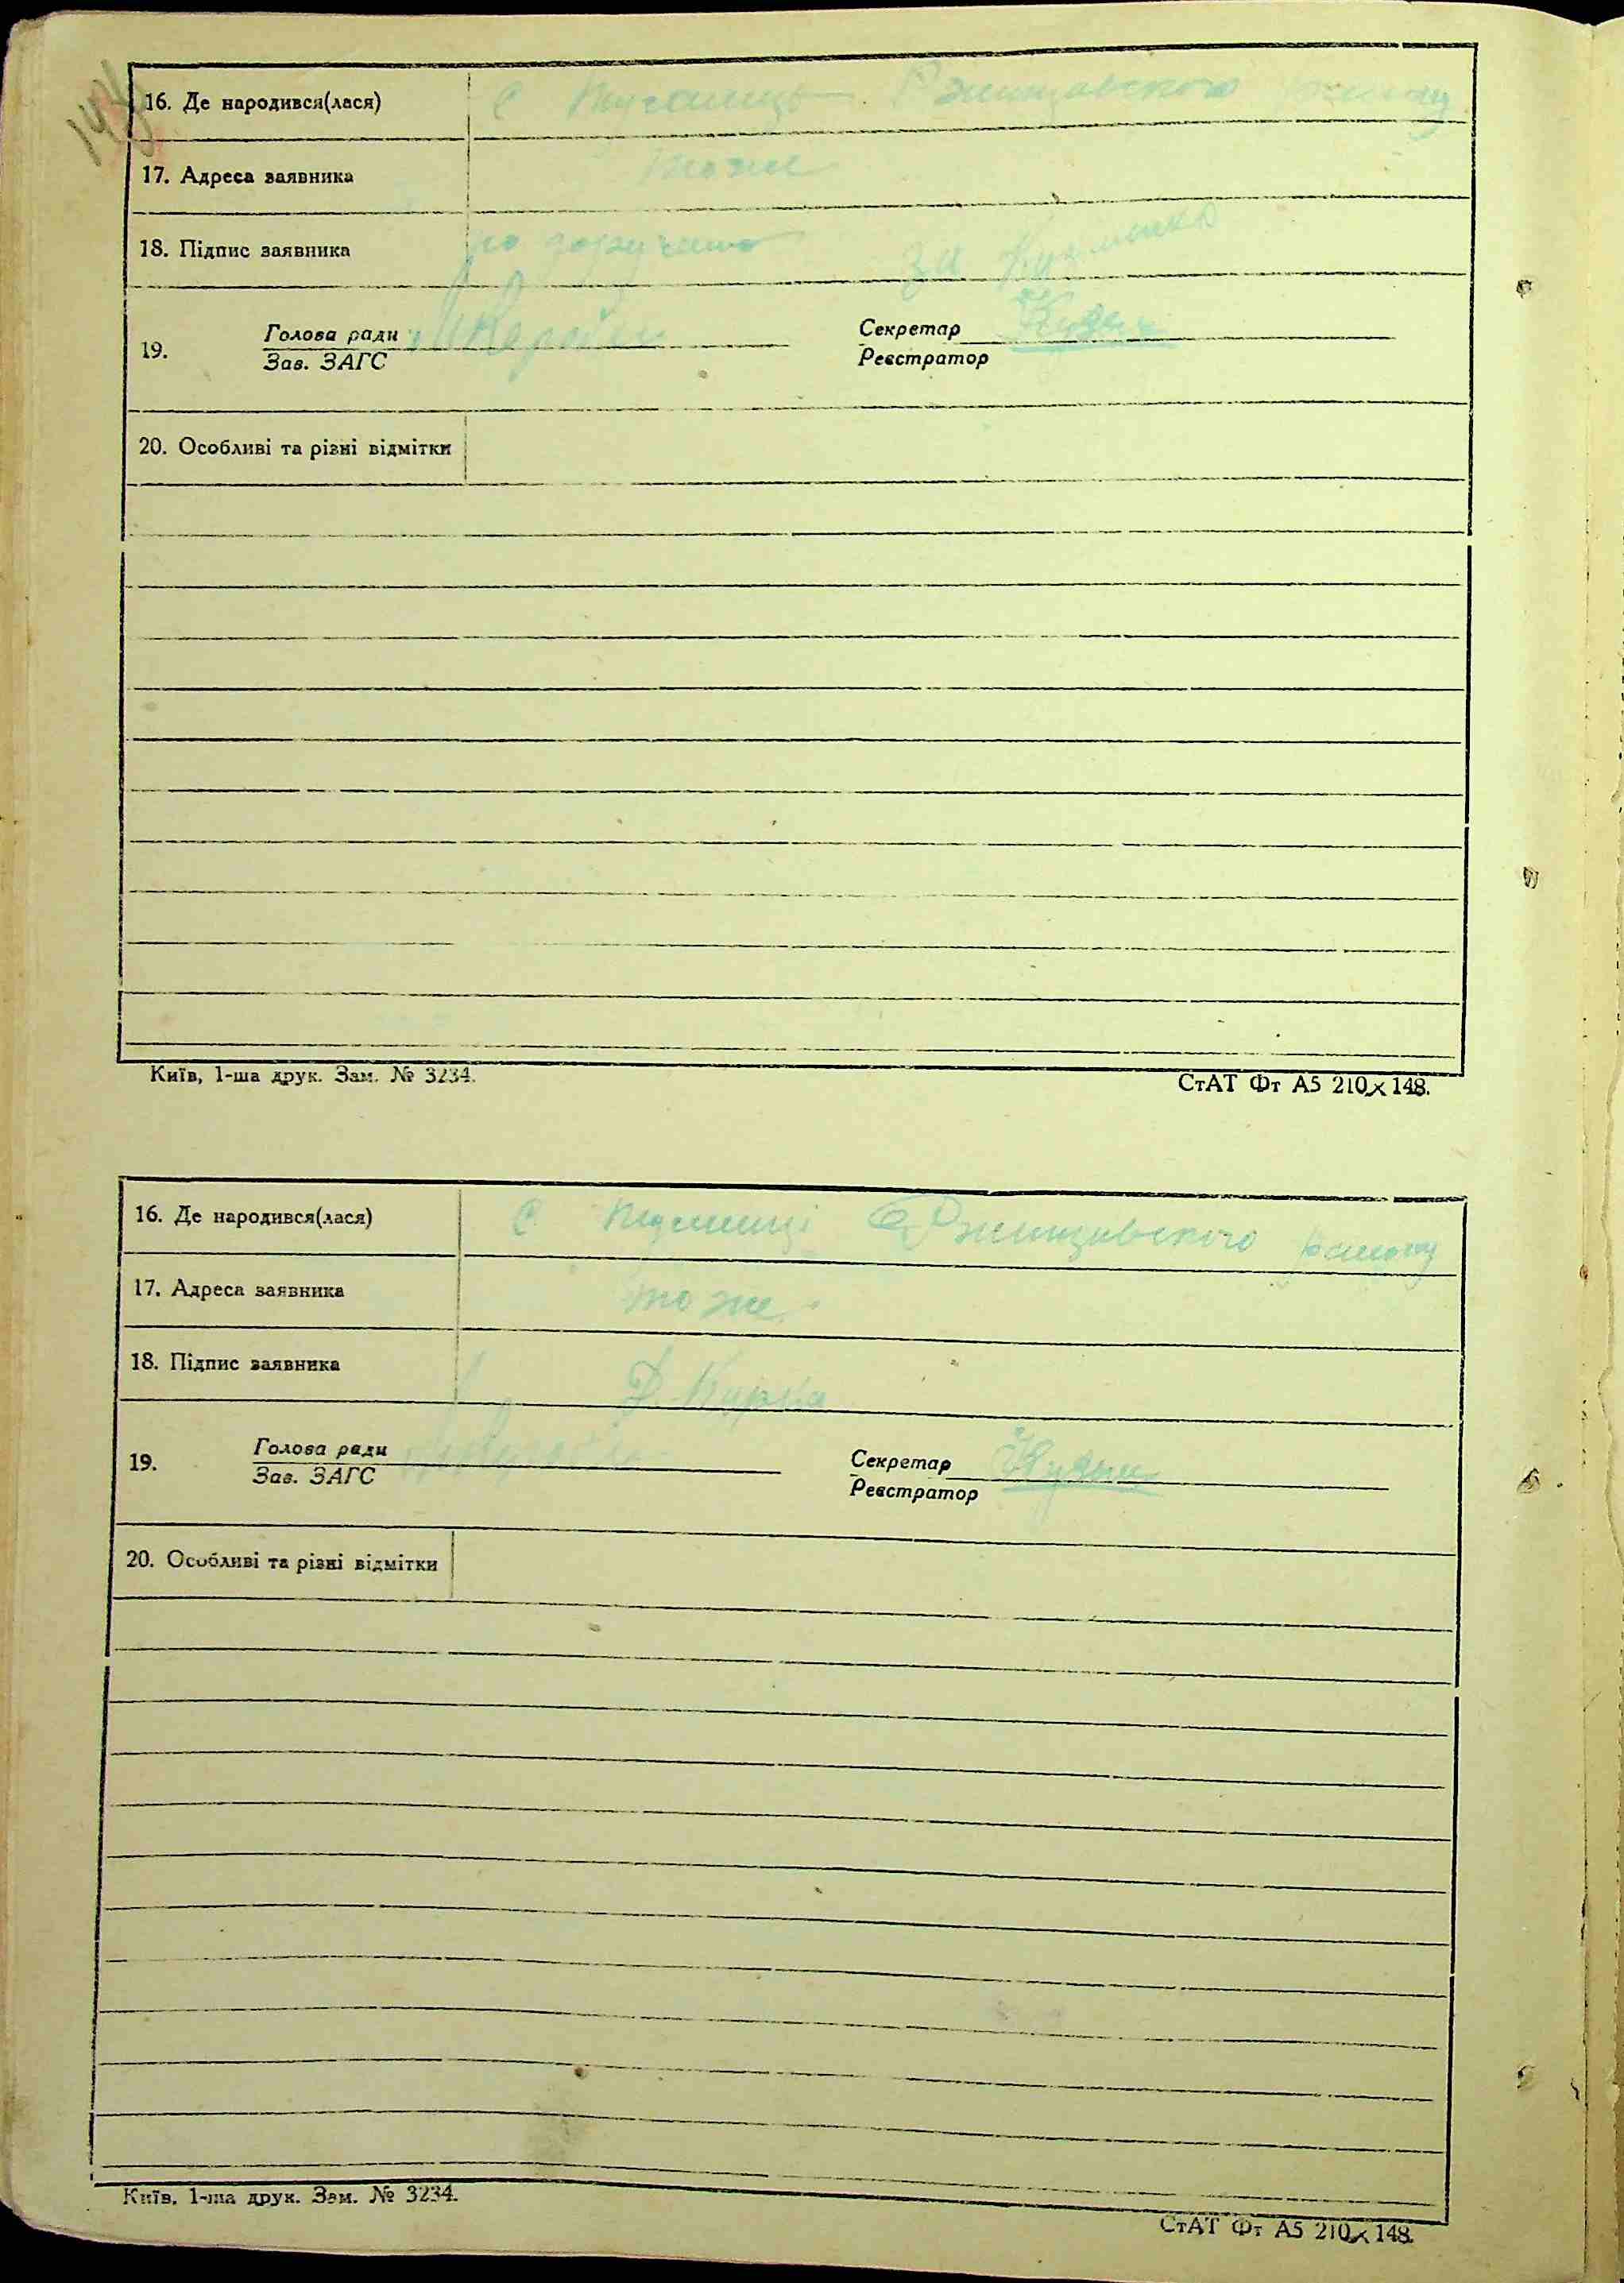 16. Де народився(лася) с Ржищевського району
17. Адреса заявника тоже
18. Підпис заявника по доручению за
Голова ради Секретар
19.
Зав. ЗАГС Реєстратор
20. Особливі та різні відмітки
Київ, 1-ша друк. Зам. № 3234.
СтАТ Фт А5 210×148.
16. Де народився(лася) с Ржищивского району
17. Адреса заявника тоже
18. Підпис заявника
Голова ради Секретар
19.
Зав. ЗАГС Реєстратор
20. Особливі та різні відмітки
Київ, 1-ша друк. Зам. № 3234.
СтАТ Фт А5 210×148.